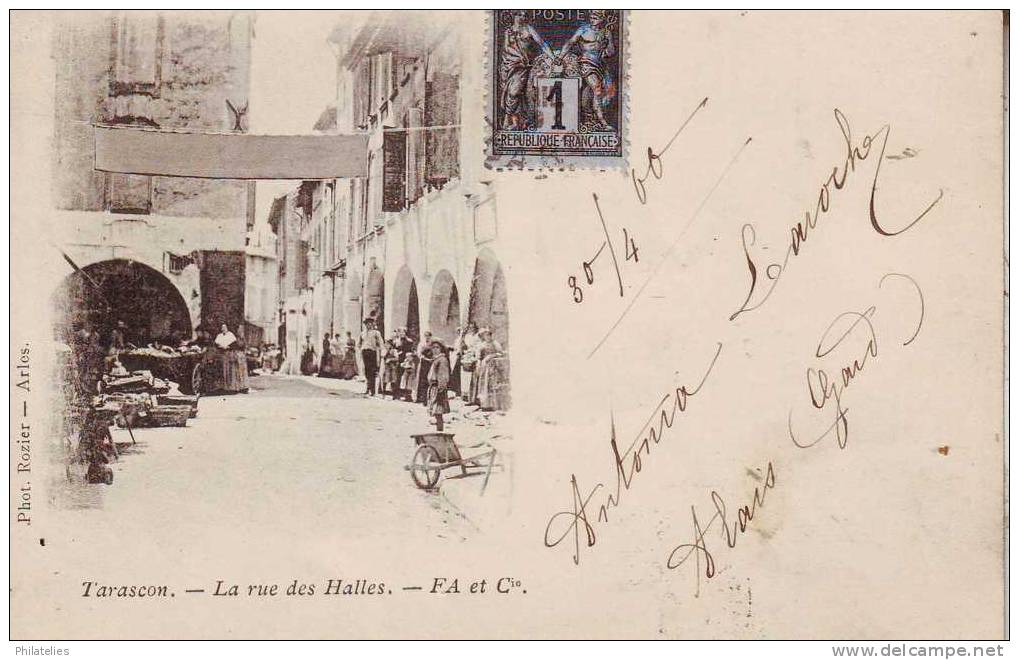 POSTE
1
REPUBLIQUE FRANÇAISE
30/4 00
Antonia Laroche
Alais
(Gard)
Phot. Rozier — Arles.
Tarascon. — La rue des Halles. — FA et Cie.
Philatelies
www.delcampe.net